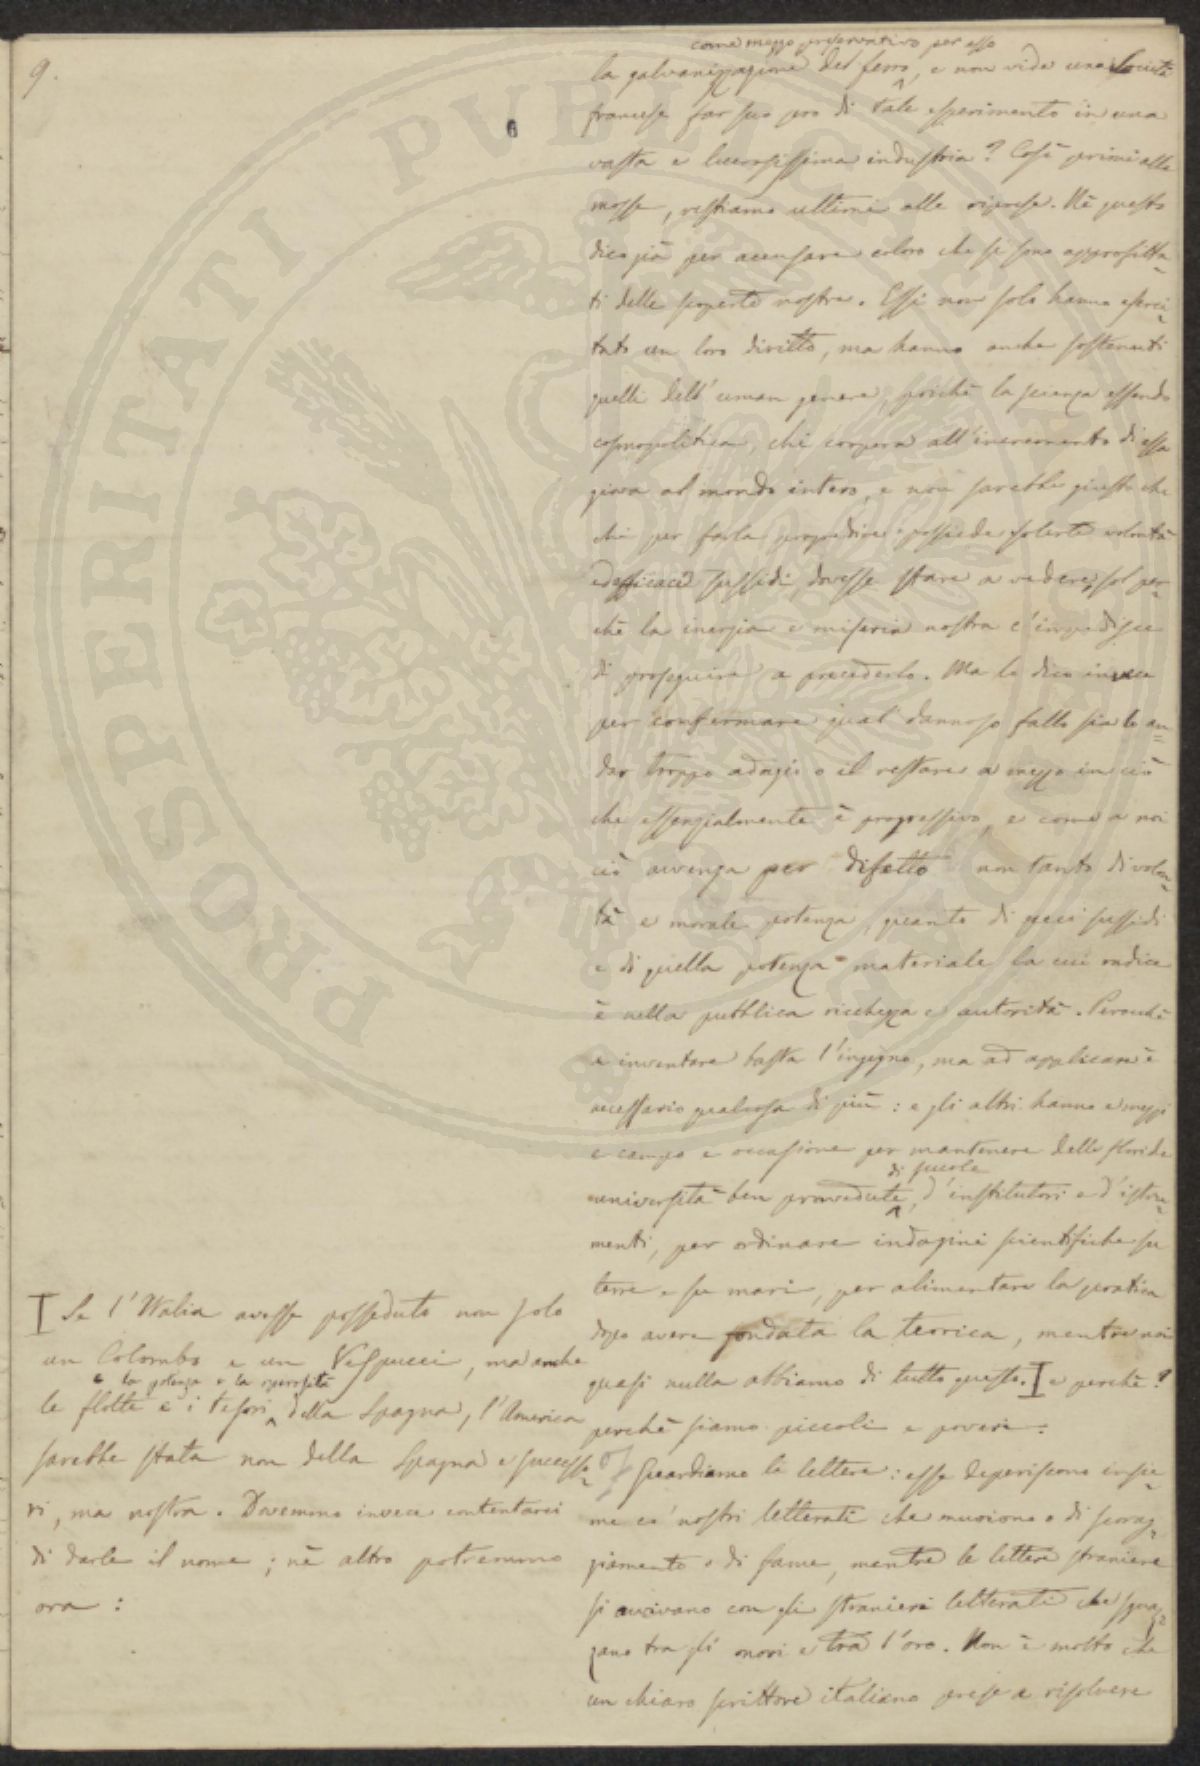 9.
6
come mezzo preservativo per esso
la galvanizzazione del ferro, e non vide una Società
francese far suo pro di tale esperimento in una
vasta e lucrosissima industria? Così primi alle
mosse, restiamo ultimi alle riprese. Nè questo
dico già per accusare coloro che si sono approfitta-
ti delle scoperte nostre. Essi non solo hanno eserci-
tato un loro diritto, ma hanno anche sostenuti
quelli dell'uman genere, poichè la scienza essendo
cosmopolitica, chi coopera all'incremento di essa
giova al mondo intero, e non sarebbe giusto che
chi per farla progredire possiede solerte volontà
ed efficaci sussidi, dovesse stare a vedere, sol per-
chè la inerzia e miseria nostra c'impedisce
di proseguire a precederlo. Ma lo dico invece
per confermare qual dannoso fallo sia lo an-
dar troppo adagio o il restare a mezzo in ciò
che essenzialmente è progressivo, e come a noi
ciò avvenga per difetto non tanto di volon-
tà e morale potenza, quanto di sussidi
e di quella potenza materiale la cui radice
è nella pubblica ricchezza e autorità. Perocchè
a inventare basta l'ingegno, ma ad applicare è
necessario qualcosa di più: e gli altri hanno e mezzi
e campo e occasione per mantenere delle floride
di scuole
università ben provvedute, d'institutori e d'istru-
menti, per ordinare indagini scientifiche su
terre e su mari, per alimentare la pratica
dopo avere fondata la teorica, mentre noi
quasi nulla abbiamo di tutto questo. I e perchè?
perchè siamo piccoli e poveri.
Guardiamo le lettere: esse deperiscono insie-
me co' nostri letterati che muoiono o di scorag-
giamento o di fame, mentre le lettere straniere
si avvivano con gli stranieri letterati che sguaz-
zano tra gli onori e tra l'oro. Non è molto che
un chiaro scrittore italiano prese a risolvere
I Se l'Italia avesse posseduto non solo
un Colombo e un Vespucci, ma anche
e la potenza e la operosità
le flotte e i tesori della Spagna, l'America
sarebbe stata non della Spagna e successo-
ri, ma nostra. Dovemmo invece contentarci
di darle il nome; nè altro potremmo
ora: